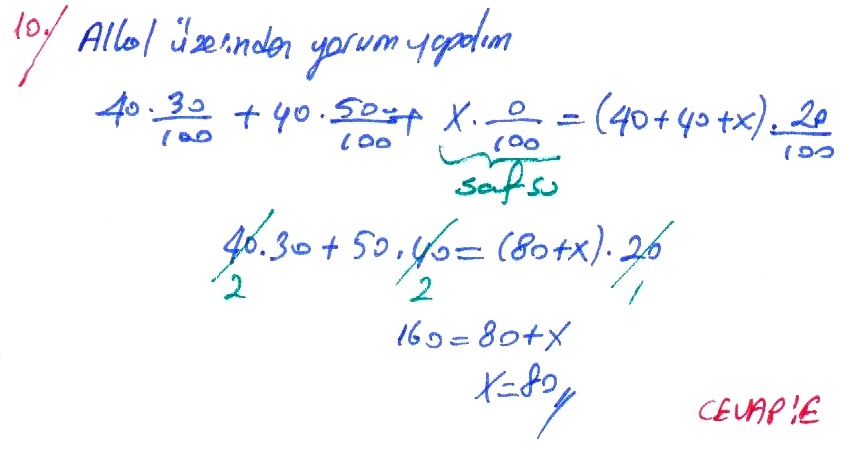 10./ Alkol üzerinden yorum yapalım
40 · 30/100 + 40 · 50/100 + x · 0/100 = (40+40+x) · 20/100
saf su
40.30 + 50.40 = (80+x) . 20
2 2 1
160 = 80+x
x=80//
CEVAP: E